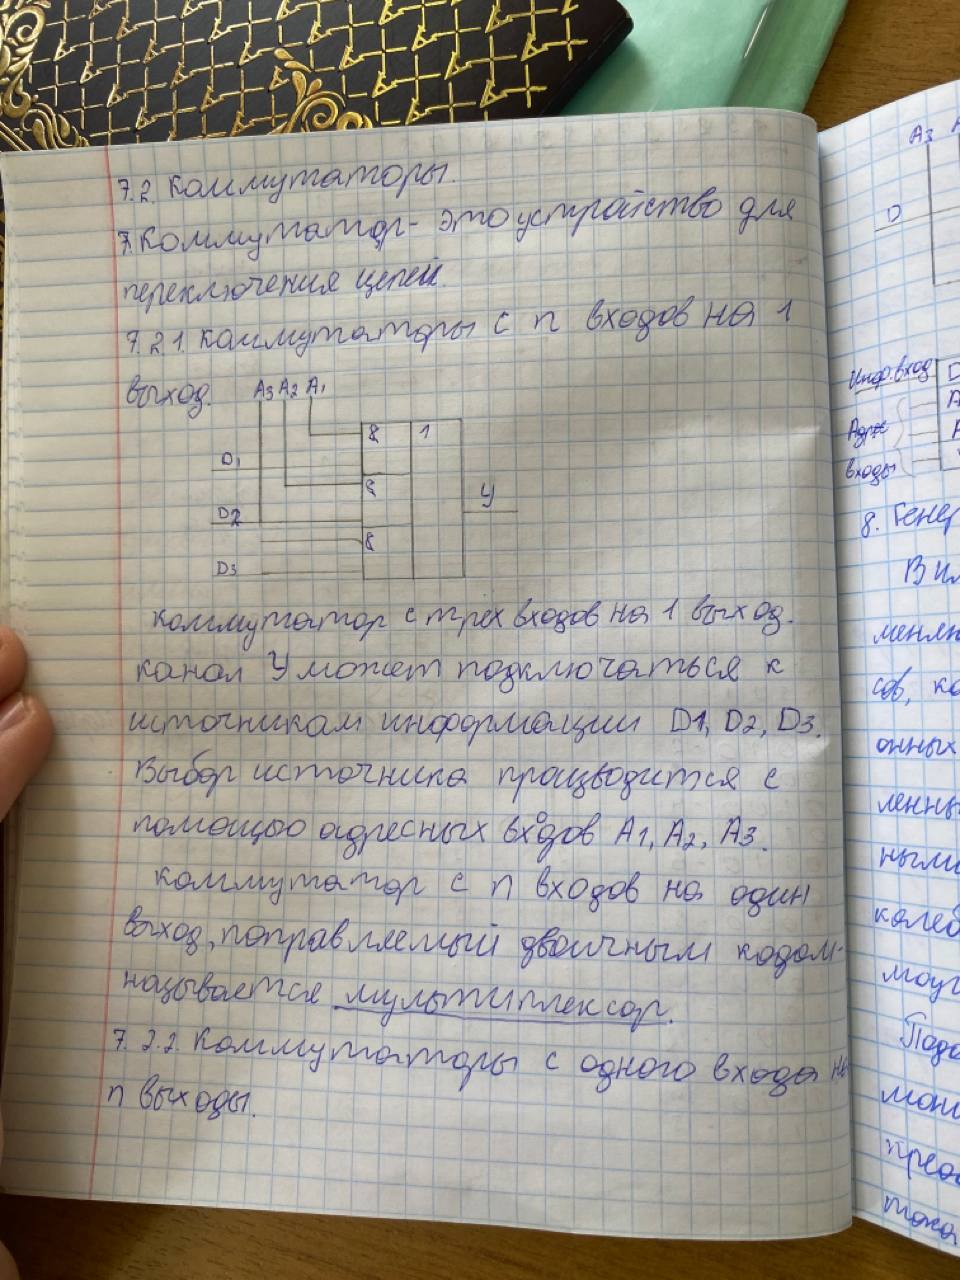 7.2. Коммутаторы.
7. Коммутатор - это устройство для
переключения цепей.
7.2.1. Коммутаторы с n входов на 1
выход.
A3 A2 A1
8 1
D1
8
У
D2
8
D3
Коммутатор с трех входов на 1 выход.
канал У может подключаться к
источникам информации D1, D2, D3.
Выбор источника производится с
помощью адресных входов A1, A2, A3.
Коммутатор с n входов на один
выход, поправляемый двоичным кодом-
называется мультиплексор.
7.2.2. Коммутаторы с одного входа на
n выходы.
A3
D
Инф. вход
D
A
Адрес
входы
8. Генер
В и
менян
сов, ко
онных
ленны
ными
колеб
моуг
Подо
мон
прео
тока